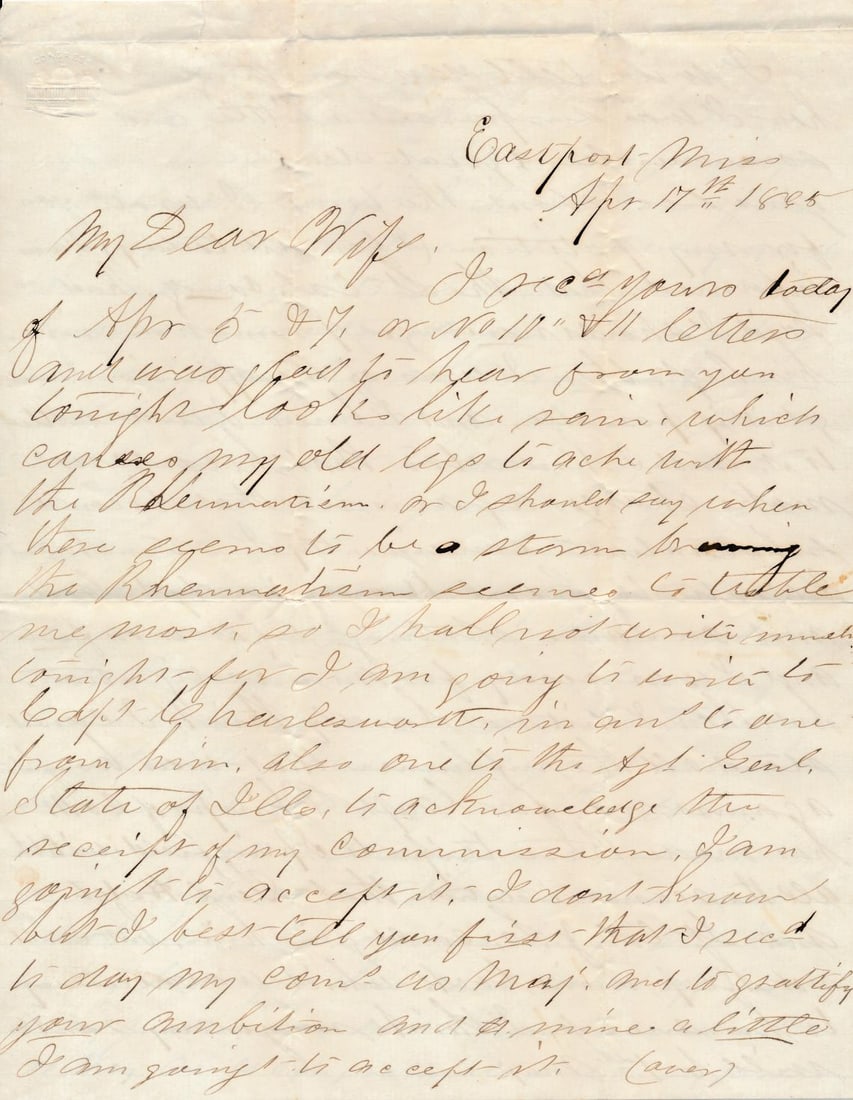 CONGRESS
Eastport Miss
Apr 17th 1865
My Dear Wife.
I recd yours today
of Apr 5 & 7, or No 10" & 11 letters
and was glad to hear from you
tonight looks like rain. which
causes my old legs to ache with
the Rheumatism. or I should say when
there seems to be a storm brewing
the Rheumatism seemes to truble
me most, so I shall not write much
tonight for I am going to write to
Capt Charlesworth, in ans to one
from him, also one to the Ajt Genl.
State of Ills, to acknowledge the
receipt of my commission, I am
goingt to accept it. I dont know
but I best tell you first that I recd
to day my coms as Maj. and to grattify
your ambition and mine a little
I am goingt to accept it. (over)